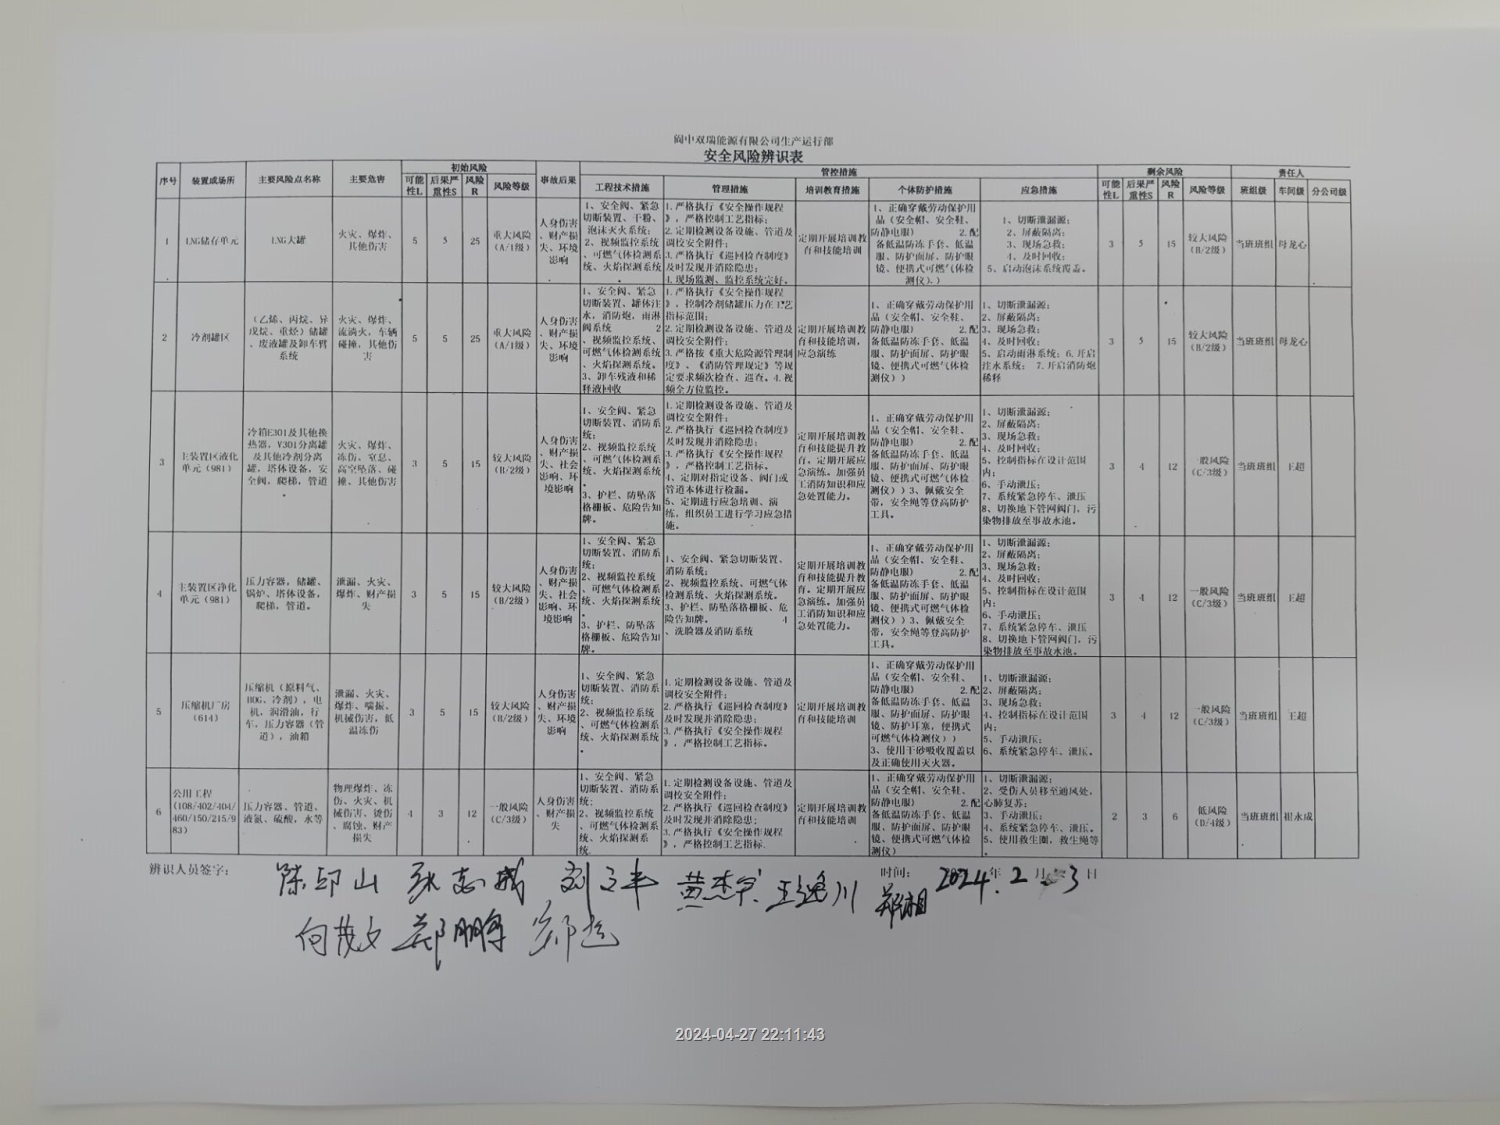 阆中双瑞能源有限公司生产运行部
安全风险辨识表
序号 装置或场所 主要风险点名称 主要危害 初始风险 事故后果 管控措施 剩余风险 责任人
可能性L 后果严重性S 风险R 风险等级 工程技术措施 管理措施 培训教育措施 个体防护措施 应急措施 可能性L 后果严重性S 风险R 风险等级 班组级 车间级 分公司级
1 LNG储存单元 LNG大罐 火灾、爆炸、其他伤害 5 5 25 重大风险(A/1级) 人身伤害、财产损失、环境影响 1、安全阀、紧急切断装置、干粉、泡沫灭火系统; 2、视频监控系统、可燃气体检测系统、火焰探测系统。 1.严格执行《安全操作规程》，严格控制工艺指标; 2.定期检测设备设施、管道及调校安全附件; 3.严格执行《巡回检查制度》及时发现并消除隐患; 4.现场监测、监控系统完好。 定期开展培训教育和技能培训 1、正确穿戴劳动保护用品（安全帽、安全鞋、防静电服） 2.配备低温防冻手套、低温服、防护面屏、防护眼镜、便携式可燃气体检测仪)、) 1、切断泄漏源; 2、屏蔽隔离; 3、现场急救; 4、及时回收; 5、启动泡沫系统覆盖。 3 5 15 较大风险(B/2级) 当班班组 母龙心
2 冷剂罐区 （乙烯、丙烷、异戊烷、重烃）储罐、废液罐及卸车臂系统 火灾、爆炸、流淌火，车辆碰撞，其他伤害 5 5 25 重大风险(A/1级) 人身伤害、财产损失、环境影响 1、安全阀、紧急切断装置、罐体注水，消防炮，雨淋阀系统 2、视频监控系统、可燃气体检测系统、火焰探测系统。 3、卸车残液和稀释液回收 1.严格执行《安全操作规程》，控制冷剂储罐压力在工艺指标范围; 2.定期检测设备设施、管道及调校安全附件; 3.严格按《重大危险源管理制度》、《消防管理规定》等规定要求频次检查、巡查。4.视频全方位监控。 定期开展培训教育和技能培训，应急演练 1、正确穿戴劳动保护用品（安全帽、安全鞋、防静电服） 2.配备低温防冻手套、低温服、防护面屏、防护眼镜、便携式可燃气体检测仪)) 1、切断泄漏源; 2、屏蔽隔离; 3、现场急救; 4、及时回收; 5、启动雨淋系统; 6.开启注水系统; 7.开启消防炮稀释 3 5 15 较大风险(B/2级) 当班班组 母龙心
3 主装置区液化单元（981） 冷箱E301及其他换热器，V301分离罐及其他冷剂分离罐，塔体设备，安全阀，爬梯，管道。 火灾、爆炸、冻伤、窒息、高空坠落、碰撞、其他伤害 3 5 15 较大风险(B/2级) 人身伤害、财产损失、社会影响、环境影响 1、安全阀、紧急切断装置、消防系统; 2、视频监控系统、可燃气体检测系统、火焰探测系统。 3、护栏、防坠落格栅板、危险告知牌。 1.定期检测设备设施、管道及调校安全附件; 2.严格执行《巡回检查制度》及时发现并消除隐患; 3.严格执行《安全操作规程》，严格控制工艺指标。 4、定期对指定设备、阀门或管道本体进行检漏。 5、定期进行应急培训、演练，组织员工进行学习应急措施。 定期开展培训教育和技能提升教育，定期开展应急演练。加强员工消防知识和应急处置能力。 1、正确穿戴劳动保护用品（安全帽、安全鞋、防静电服） 2.配备低温防冻手套、低温服、防护面屏、防护眼镜、便携式可燃气体检测仪)）3、佩戴安全带，安全绳等登高防护工具。 1、切断泄漏源; 2、屏蔽隔离; 3、现场急救; 4、及时回收; 5、控制指标在设计范围内; 6、手动泄压; 7、系统紧急停车、泄压 8、切换地下管网阀门，污染物排放至事故水池。 3 4 12 一般风险(C/3级) 当班班组 王超
4 主装置区净化单元（981） 压力容器，储罐、锅炉、塔体设备，爬梯，管道。 泄漏、火灾、爆炸、财产损失 3 5 15 较大风险(B/2级) 人身伤害、财产损失、社会影响、环境影响 1、安全阀、紧急切断装置、消防系统; 2、视频监控系统、可燃气体检测系统、火焰探测系统。 3、护栏、防坠落格栅板、危险告知牌。 1、安全阀、紧急切断装置、消防系统; 2、视频监控系统、可燃气体检测系统、火焰探测系统。 3、护栏、防坠落格栅板、危险告知牌。 4、洗脸器及消防系统 定期开展培训教育和技能提升教育，定期开展应急演练。加强员工消防知识和应急处置能力。 1、正确穿戴劳动保护用品（安全帽、安全鞋、防静电服） 2.配备低温防冻手套、低温服、防护面屏、防护眼镜、便携式可燃气体检测仪)）3、佩戴安全带，安全绳等登高防护工具。 1、切断泄漏源; 2、屏蔽隔离; 3、现场急救; 4、及时回收; 5、控制指标在设计范围内; 6、手动泄压; 7、系统紧急停车、泄压 8、切换地下管网阀门，污染物排放至事故水池。 3 4 12 一般风险(C/3级) 当班班组 王超
5 压缩机厂房（614） 压缩机（原料气、BOG、冷剂），电机，润滑油，行车，压力容器（管道），油箱 泄漏、火灾、爆炸、喘振、机械伤害，低温冻伤 3 5 15 较大风险(B/2级) 人身伤害、财产损失、环境影响 1、安全阀、紧急切断装置、消防系统; 2、视频监控系统、可燃气体检测系统、火焰探测系统。 1.定期检测设备设施、管道及调校安全附件; 2.严格执行《巡回检查制度》及时发现并消除隐患; 3.严格执行《安全操作规程》，严格控制工艺指标。 定期开展培训教育和技能培训 1、正确穿戴劳动保护用品（安全帽、安全鞋、防静电服） 2.配备低温防冻手套、低温服、防护面屏、防护眼镜、防护耳塞，便携式可燃气体检测仪)） 3、使用干砂吸收覆盖以及正确使用灭火器。 1、切断泄漏源; 2、屏蔽隔离; 3、现场急救; 4、控制指标在设计范围内; 5、手动泄压; 6、系统紧急停车、泄压。 3 4 12 一般风险(C/3级) 当班班组 王超
6 公用工程(108/402/404/460/150/215/983) 压力容器、管道、液氮、硫酸，水等 物理爆炸、冻伤、火灾、机械伤害、烫伤、腐蚀、财产损失 4 3 12 一般风险(C/3级) 人身伤害、财产损失 1、安全阀、紧急切断装置、消防系统; 2、视频监控系统、可燃气体检测系统、火焰探测系统 1.定期检测设备设施、管道及调校安全附件; 2.严格执行《巡回检查制度》及时发现并消除隐患; 3.严格执行《安全操作规程》，严格控制工艺指标. 定期开展培训教育和技能培训 1、正确穿戴劳动保护用品（安全帽、安全鞋、防静电服） 2.配备低温防冻手套、低温服、防护面屏、防护眼镜、便携式可燃气体检测仪) 1、切断泄漏源; 2、受伤人员移至通风处，心肺复苏; 3、手动泄压; 4、系统紧急停车、泄压。 5、使用救生圈，救生绳等。 2 3 6 低风险(D/4级) 当班班组 崔永成
辨识人员签字: 陈邱山 张志成 王逸川 郑湘 时间: 2024.年 2 月 3 日
向茂文 郑鹏
2024-04-27 22:11:43